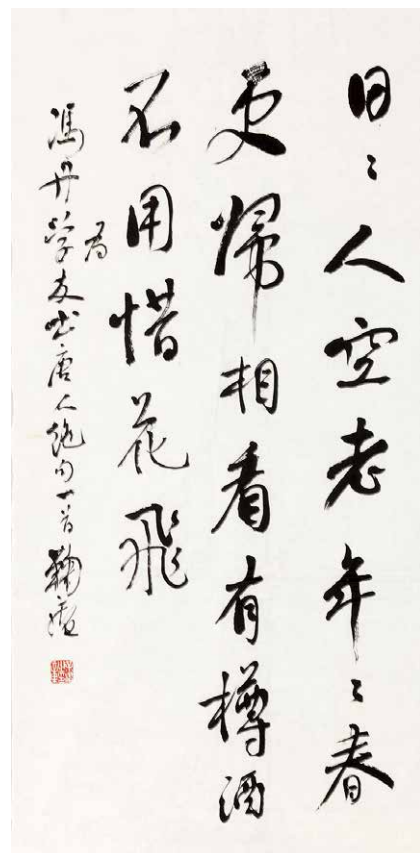 日〻人空老年〻春
更帰相看有樽酒
不用惜花飛
馮丹学友书唐人絶句一首